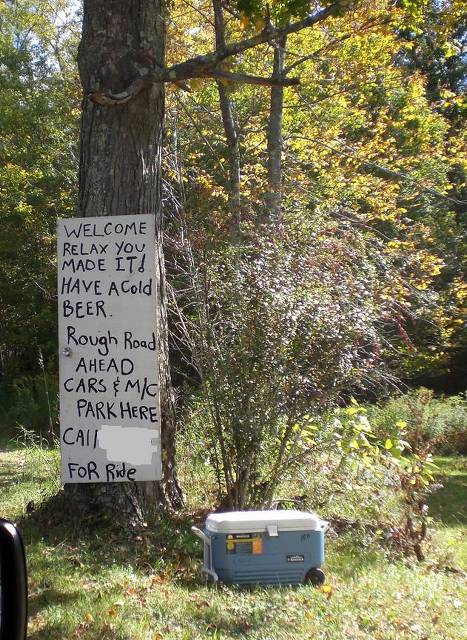 WELCOME
RELAX YOU
MADE IT!
HAVE A Cold
BEER.
Rough Road
AHEAD
CARS & M/C
PARK HERE
CAll
FOR Ride